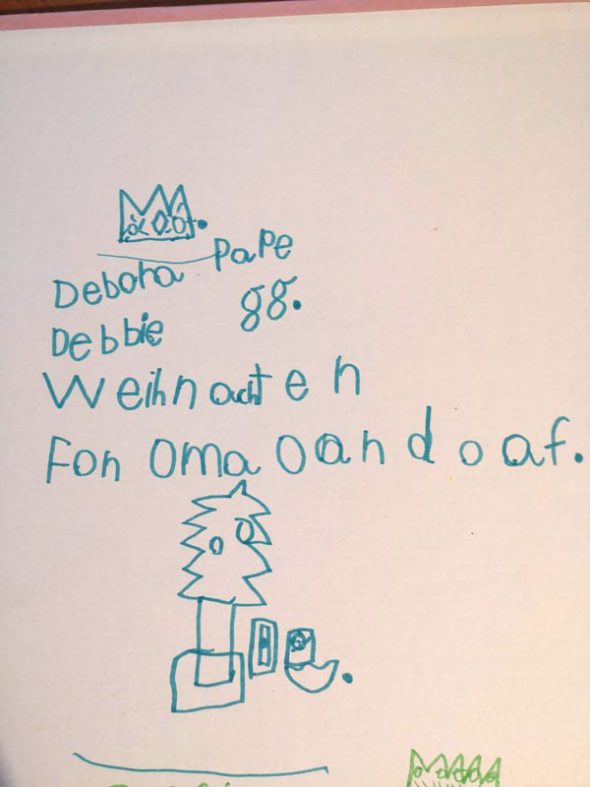 Debora Pape
Debbie gg.
Weihnachten
Fon Oma oandoaf.